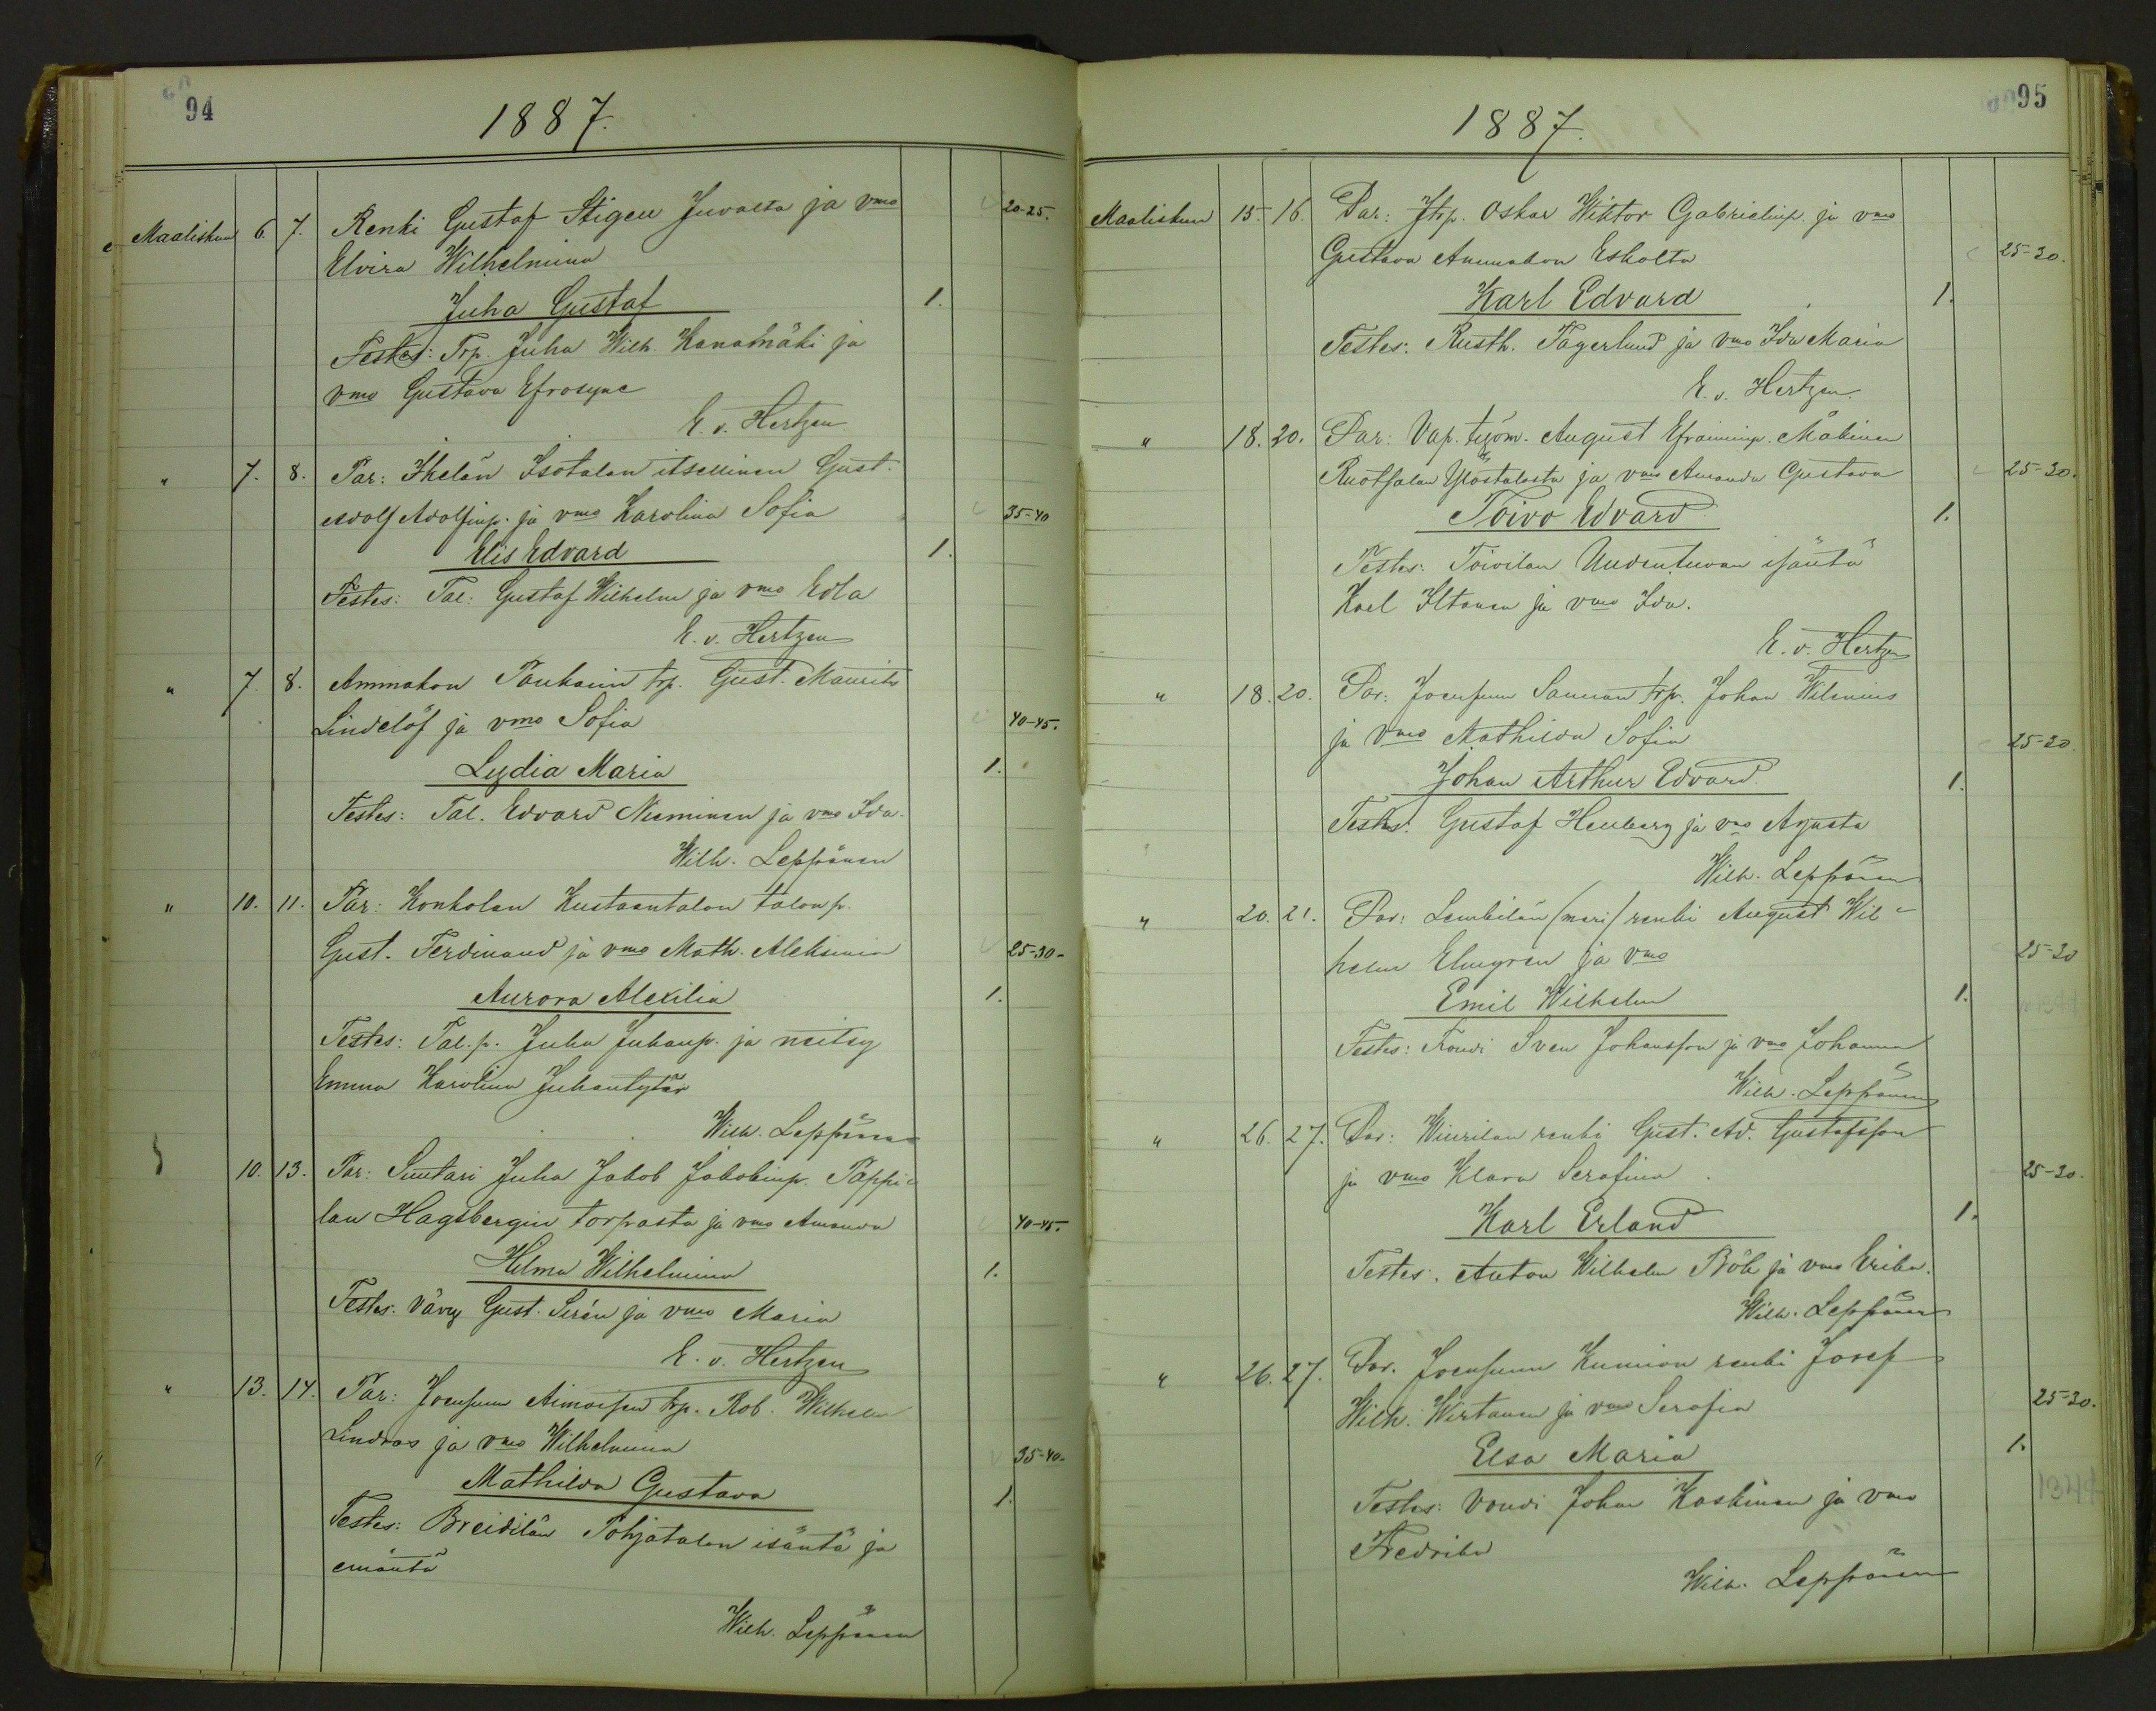 94
1887.
Maaliskuu 6. 7. Renki Gustaf Stigell Juvalta ja vmo 20-25.
Elvira Wilhelmina
Juha Gustaf 1.
Testes: Trp. Juha Wilh. Kanamäki ja
vmo Gustava Efrosyne
E. v. Hertzen
" 7. 8. Par: Ihelän Isotalon itsellinen Gust.
Adolf Adolfinp. ja vmo Karolina Sofia 35-40
Elis Edvard 1.
Testes: Tal. Gustaf Wilhelm ja vmo Edla
E. v. Hertzen
" 7. 8. Ammakon trp. Gust. Maurits
Lindelöf ja vmo Sofia 40-45.
Lydia Maria 1.
Testes: Tal. Edvard Nieminen ja vmo Ida.
Wilh. Leppänen
" 10. 11. Par: Konkolan Kustaantalon talonp.
Gust. Ferdinand ja vmo Math. 25-30-
Aurora Alexilia 1.
Testes: Tal.p. Juha Juhanp. ja neitsy
Emma Karolina Juhantytär
Wilh. Leppänen
10. 13. Par: Suutari Juha Jakob Jakobinp. Pappi-
lan Hagsbergin torpasta ja vmo Amanda 40-45.
Hilma Wilhelmina 1.
Testes: Vävy Gust. Sirén ja vmo Maria
E. v. Hertzen
" 13. 14. Par: Joensuun trp. Rob. Wilhelm
Lindros ja vmo Wilhelmina 35-40.
Mathilda Gustava 1.
Testes: Breidilän Pohjatalon isäntä ja
emäntä
Wilh. Leppänen
95
1887.
Maaliskuu 15. 16. Par: Itsp. Oskar Wiktor Gabrielinp. ja vmo
Gustava Ammakon Eskolta 25-30.
Karl Edvard 1.
Testes: Rusth. Fagerlund ja vmo Ida Maria
E. v. Hertzen.
" 18. 20. Par: Vap. työm. August Efraiminp. Mäkinen
Ruotsalan Ylöstalosta ja vmo Amanda Gustava 25-30.
Toivo Edvard 1.
Testes: Toivilan Uudentuvan isäntä
Karl Iltanen ja vmo Ida.
E. v. Hertzen
" 18. 20. Par: Joensuun Saunan trp. Johan Wilenius
ja vmo Mathilda Sofia 25-30.
Johan Arthur Edvard 1.
Testes: Gustaf Henberg ja vmo Agusta
Wilh. Leppänen
" 20. 21. Par: renki August Wil-
helm Elmgren ja vmo 25-30
Emil Wilhelm 1.
Testes: Sven Johansson ja vmo Johanna
Wilh. Leppänen
" 26. 27. Par: Wiurilan renki Gust. Ad. Gustafsson
ja vmo Klara Serafina 25-30.
Karl Erland 1.
Testes: Anton Wilhelm Böök ja vmo Erika.
Wilh. Leppänen
" 26. 27. Par. Joensuun renki Josef
Wilh. Wirtanen ja vmo Serafia 25-30.
Elsa Maria 1.
Testes: Vouti Johan Koskinen ja vmo
Fredrika
Wilh. Leppänen